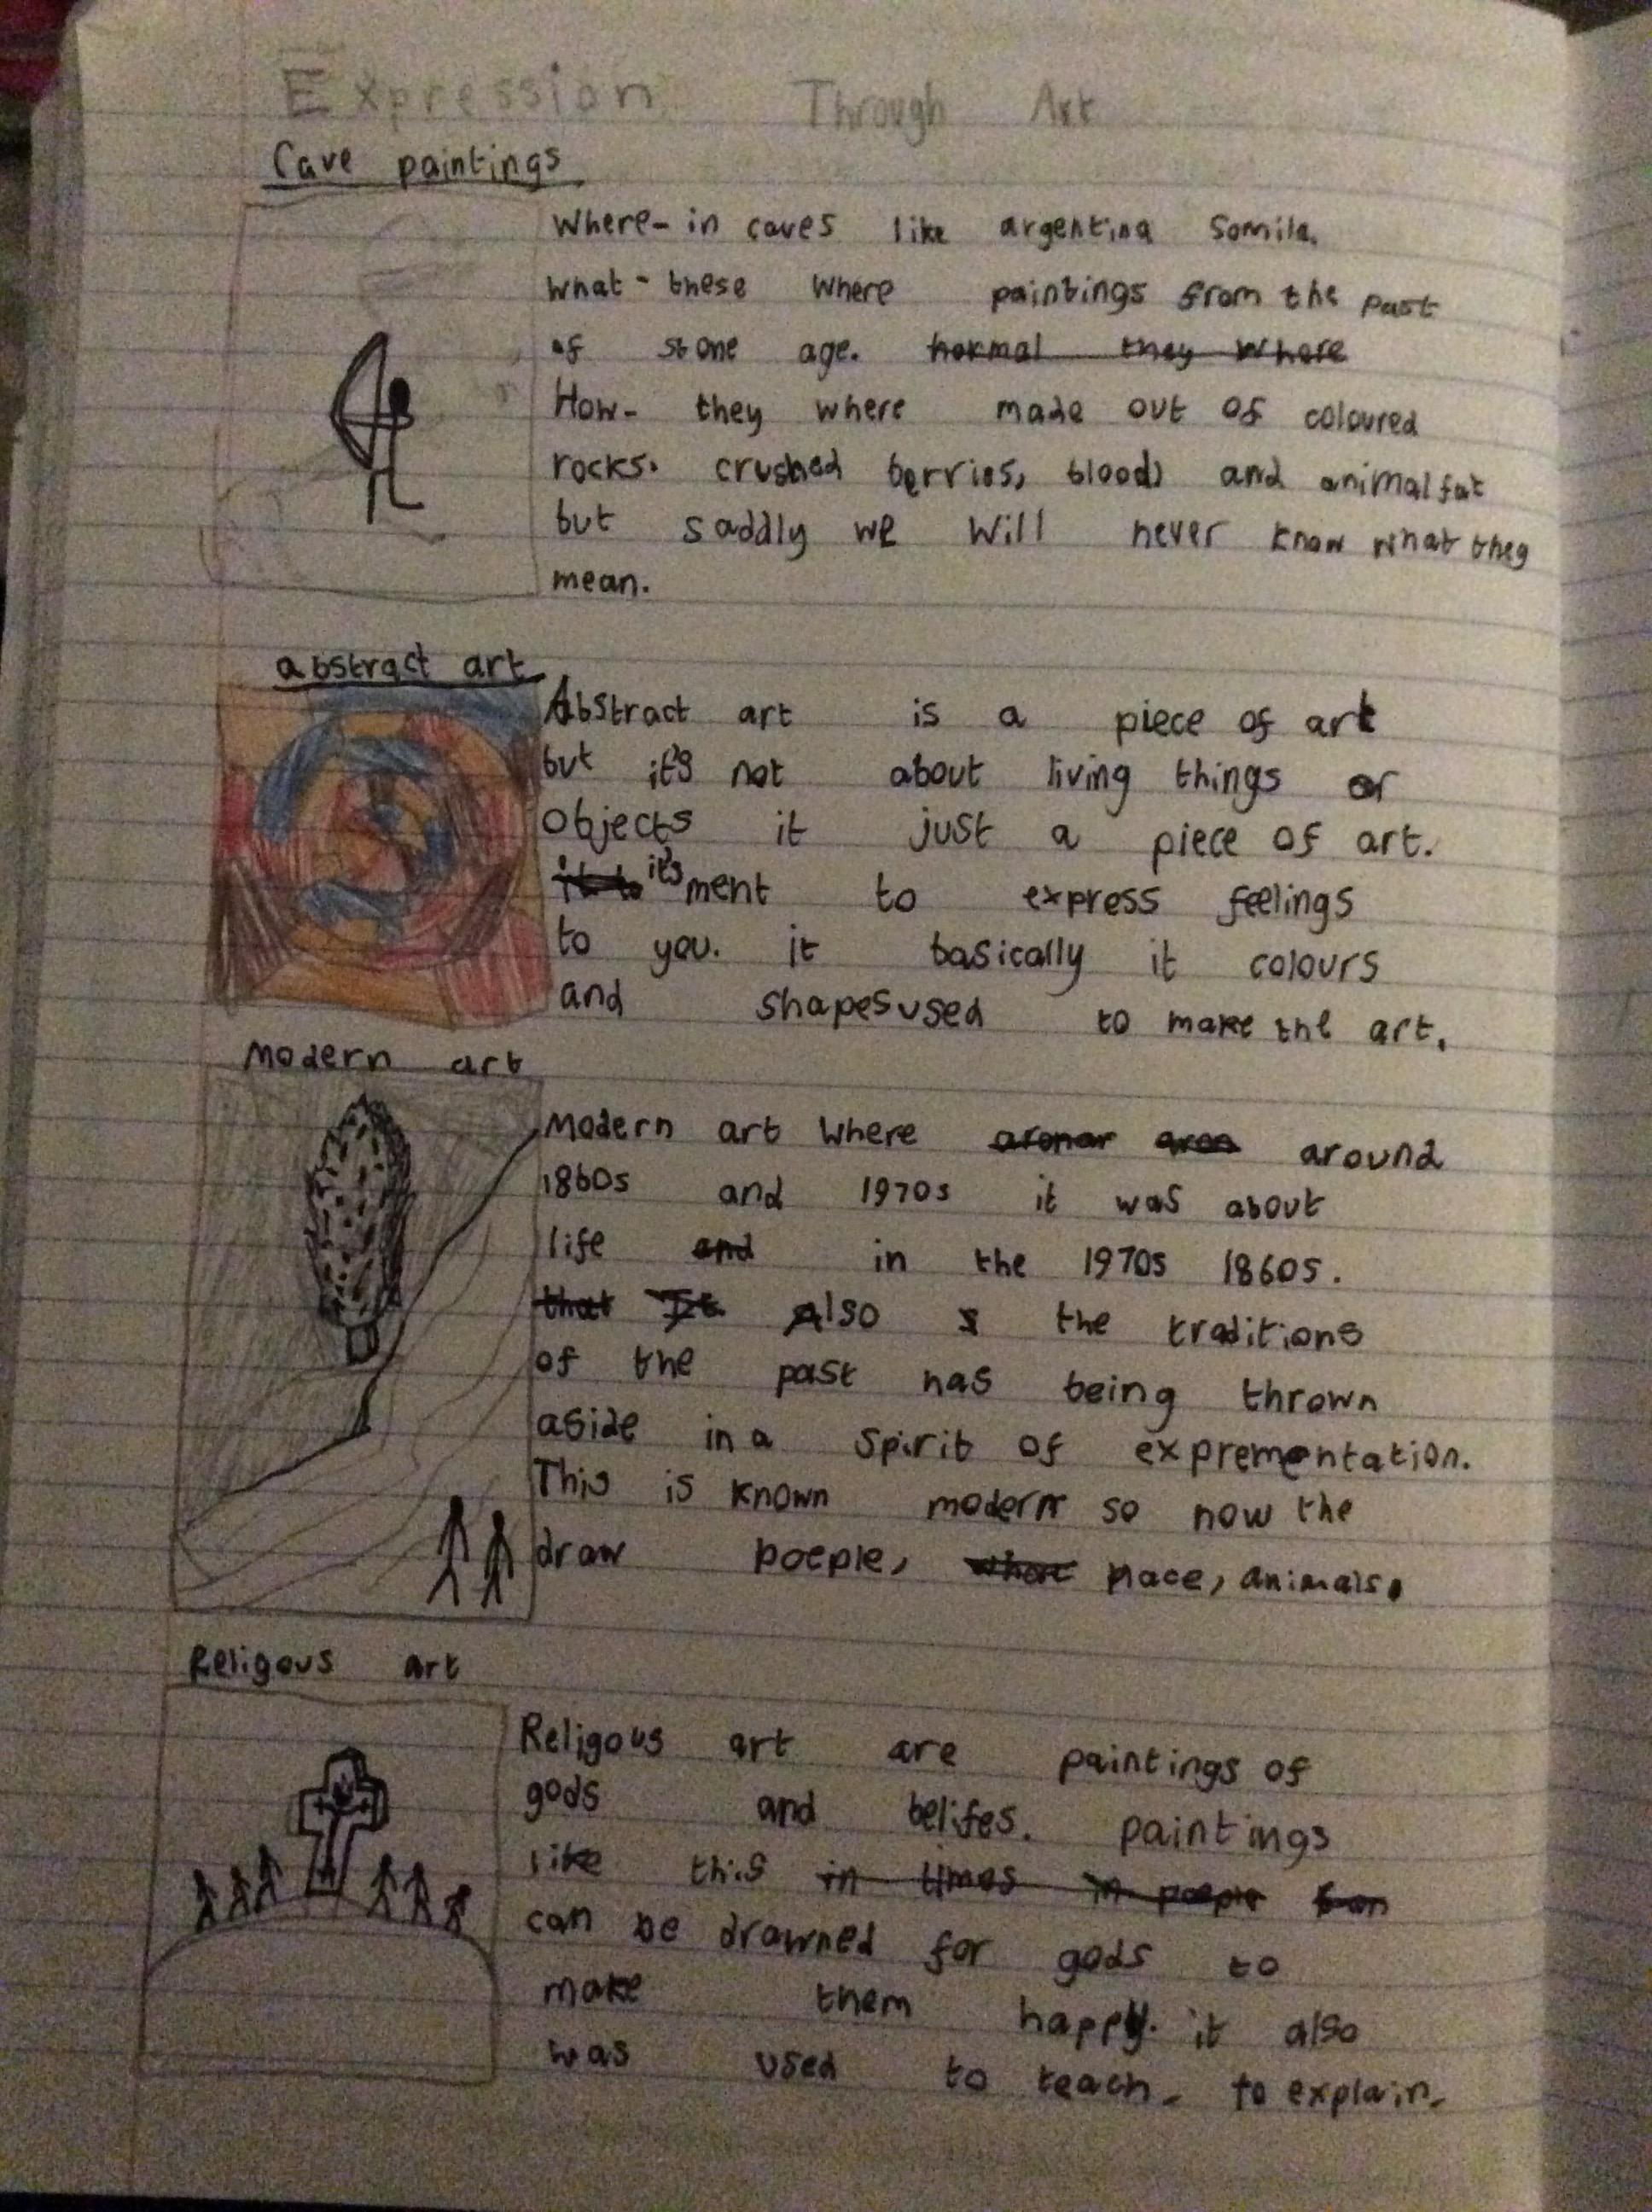 Expression Through Art
Cave paintings
Where- in caves like argentina Somila.
What- these where paintings from the past
of stone age. normal they where
How- they where made out of coloured
rocks. crushed berries, blood, and animal fat
but saddly we will never know what they
mean.
abstract art
Abstract art is a piece of art
but it's not about living things or
objects it just a piece of art.
it's ment to express feelings
to you. it basically it colours
and shapes used to make the art.
Modern art
Modern art where around
1860s and 1970s it was about
life and in the 1970s 1860s.
that It Also s the traditions
of the past has being thrown
aside in a spirit of exprementation.
This is known modern so now the
draw poeple, place, animals.
Religous art
Religous art are paintings of
gods and belifes. paintings
like this in times in poeple
can be drawned for gods to
make them happy. it also
was used to teach. to explain.